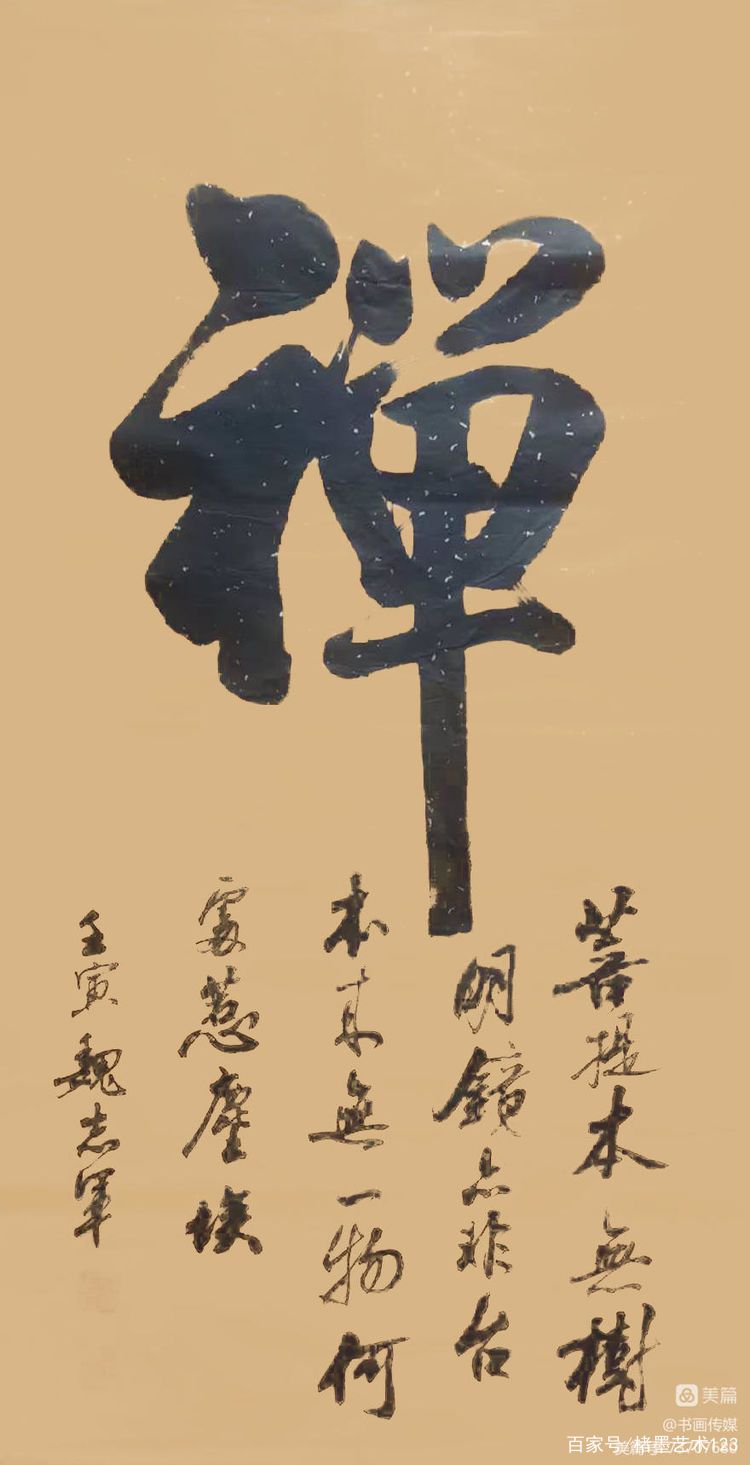 禪
菩提本無樹
明鏡亦非台
本来無一物何
處惹塵埃
壬寅魏志军
美篇
@书画传媒
百家号/楮墨艺术123